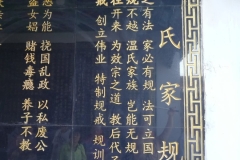 氏家规
之有法 家必有规 法可立国
规不越 温氏家族 岂能无规
在开来 为效宗之道 教后代子
戒 创立伟业 特制规戒 规训
为恶 挠国乱政 以私废公
盗女娼 赌钱毒瘾 养子不教